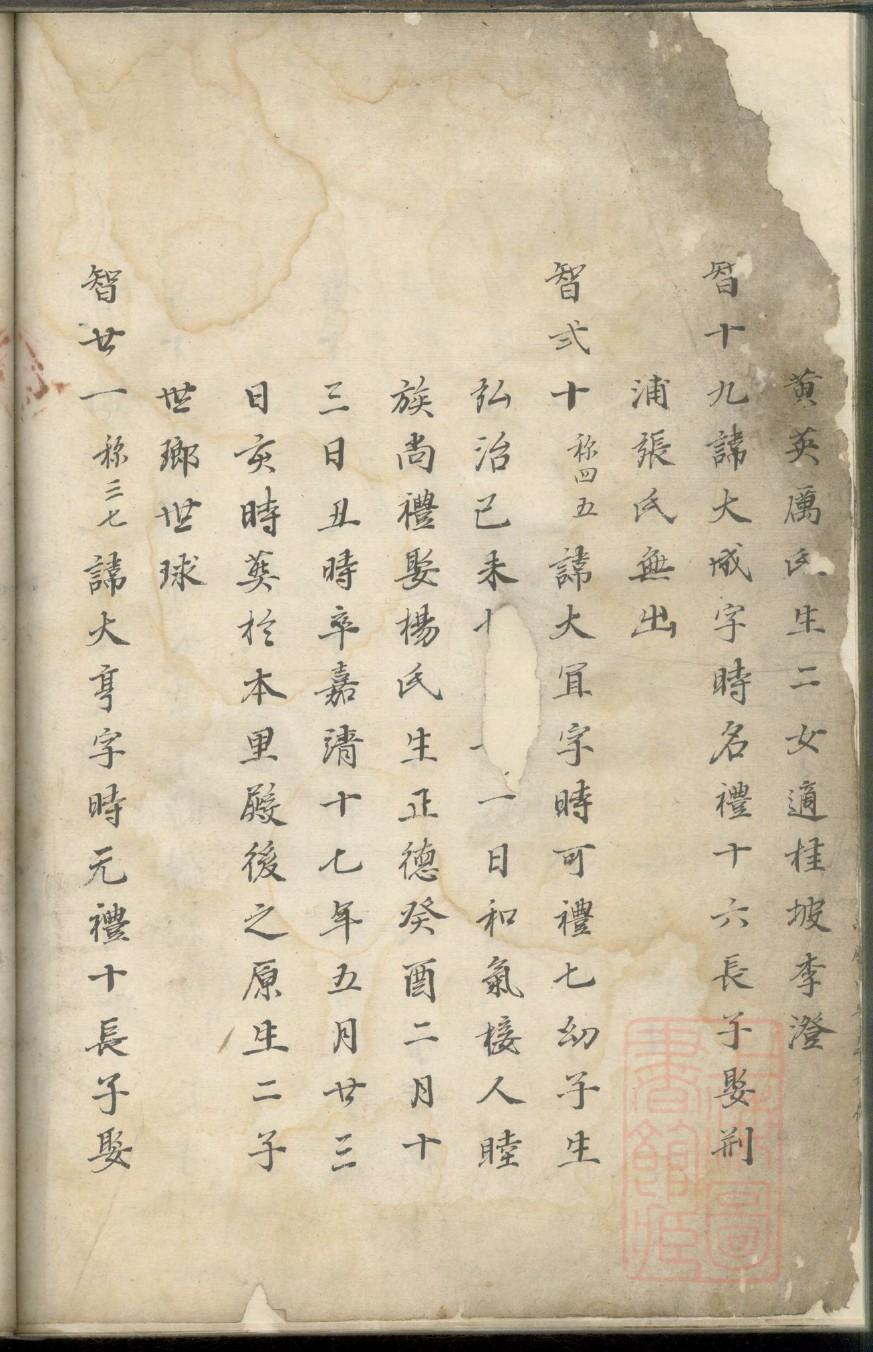 黄英厲氏生二女適桂坡李澄
智十九諱大成字時名禮十六長子娶荆
浦張氏無出
智弍十称四五諱大宜字時可禮七幼子生
弘治己未十一日和氣接人睦
族尚禮娶楊氏生正德癸酉二月十
三日丑時卒嘉靖十七年五月廿三
日亥時葵於本里殿後之原生二子
世瑯世球
智廿一称三七諱大亨字時元禮十長子娶